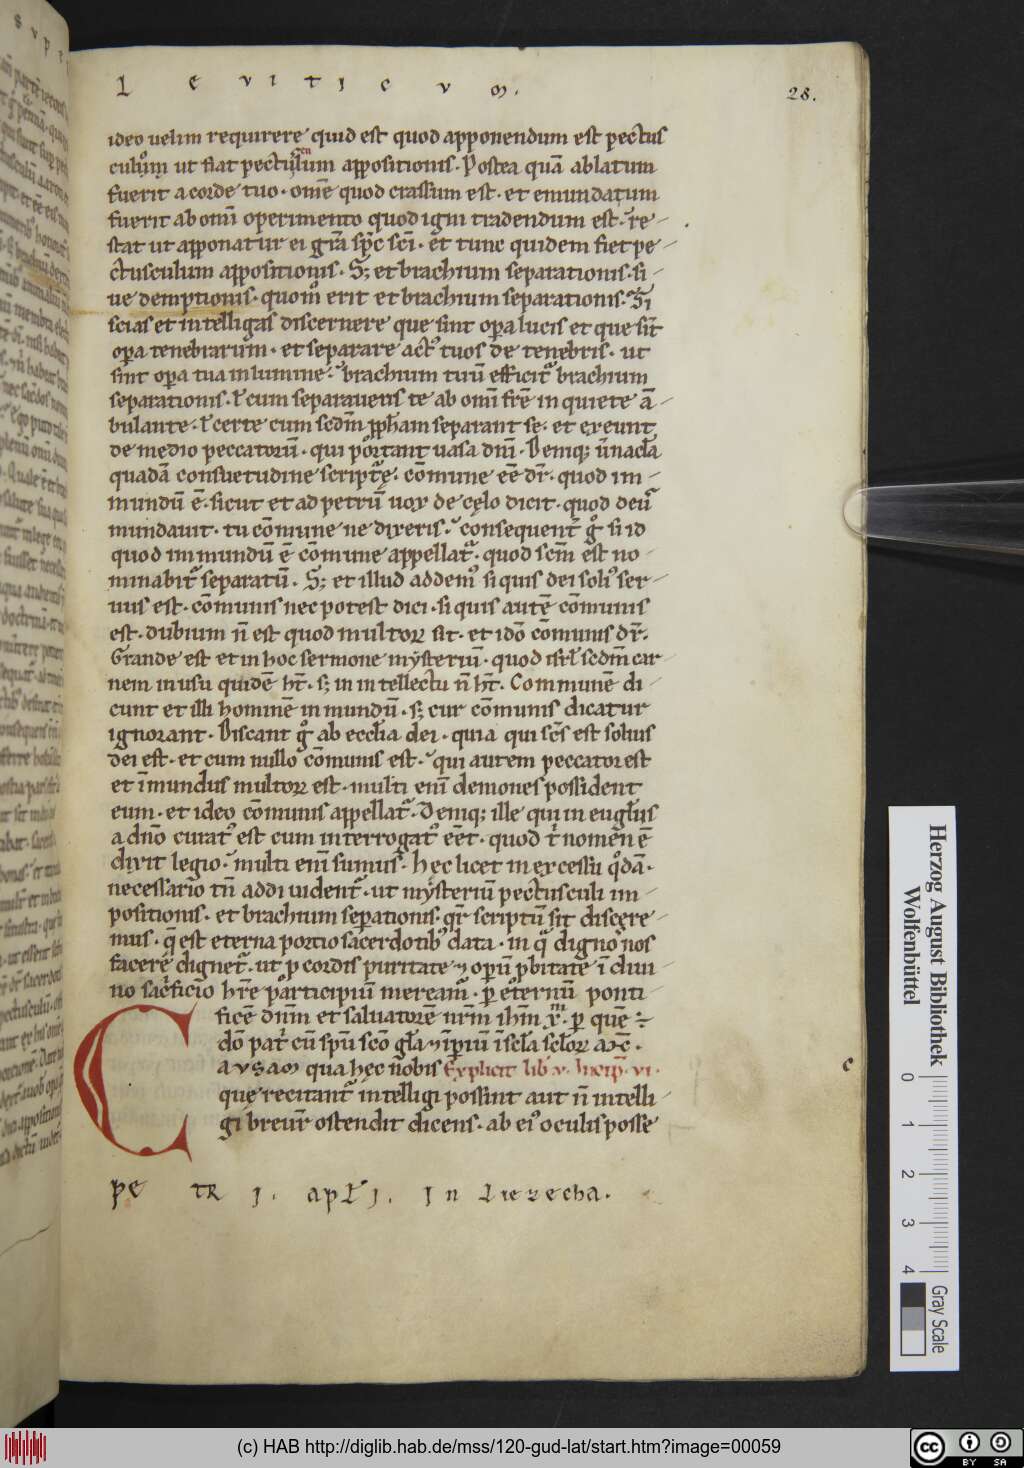 L e v i t i c v m.
28.
ideo uelim requirere quid est quod apponendum est pectus
culum ut fiat pectusculum appositionis. Postea quā ablatum
fuerit a corde tuo. om̄e quod crassum est. et emundatum
fuerit ab om̄i operimento quod igni tradendum est. re
stat ut apponatur ei grā sp̄c sc̄i. et tunc quidem fiet pe
ctusculum appositionis. S; et brachium separationis. si
ue demptionis. quom̄ erit et brachium separationis. Si
scias et intelligas discernere que sint oꝑa lucis et que sīt
oꝑa tenebrarum. et separare act᷒ tuos de tenebris. ut
sint oꝑa tua in lumine. brachium tuū efficit᷑ brachium
separationis. ł cum separaueris te ab om̄i fr̄e inquiete ā
bulante. ł certe cum scdm̄ ꝓpham separant se. et exeunt
de medio peccatorū. qui portant uasa dn̄i. Demq; ū nacła
quadā consuetudine scripture. cōmune eē dr̄. quod im
mundū ē. sicut et ad petrū uox de cęlo dicit. quod deus
mundauit. tu cōmune ne dixeris. consequent̄ gͦ si id
quod immundū ē cōmune appellat᷑. quod sc̄m est no
minabit᷑ separatū. S; et illud addem᷒ si quis dei soli᷒ ser
uus est. cōmunis nec potest dici. si quis autē cōmunis
est. dubium n̄ est quod multoꝝ sit. et idō cōmunis dr̄.
Grande est et in hoc sermone mysteriū. quod isrł scdm̄ car
nem in usu quidē ht̄. s; in intellectu n̄ ht̄. Communē di
cunt et illi hominē inmundū. s; cur cōmunis dicatur
ignorant. Discant gͦ ab ecclia dei. quia qui sc̄s est solius
dei est. et cum nullo cōmunis est. qui autem peccator est
et īmundus multoꝝ est. multi enī demones possident
eum. et ideo cōmunis appellat᷑. Demq; ille qui in euglīis
a dnō curat᷒ est cum interrogat᷒ eēt. quod t̄ nomen ē
dixit legio. multi enī sumus. hęc licet in excessu qͦdā.
necessario tn̄ addi uident᷑. ut mysteriū pectusculi im
positionis. et brachium seꝑationis. qr̄ scriptū sit discere
mus. q̄ est eterna portio sacerdotib᷒ data. in q̄ digno nos
facere dignet᷑. ut p cordis puritate ⁊ opū ꝓbitatē ī diui
no sacficio hr̄e participiū meream᷑. ꝑ eternū ponti
ficē dn̄m et saluatorē nr̄m ihm̄ xp̄m. ꝑ quē ÷
dō pat̄ cū spū scō gła ⁊ īꝑiū ī scła scłoꝝ am̄.
CAVSAM qua hęc nobis Explicit lib᷑ .v. Incip̄ .vi.
c
que recitant᷑ intelligi possint aut n̄ intelli
gi breuit̄ ostendit dicens. ab ei᷒ oculis posse
PE TRI. aPŁI. In Lierecha.
Herzog August Bibliothek
Wolfenbüttel
0 1 2 3 4
Gray Scale
(c) HAB http://diglib.hab.de/mss/120-gud-lat/start.htm?image=00059
cc BY SA